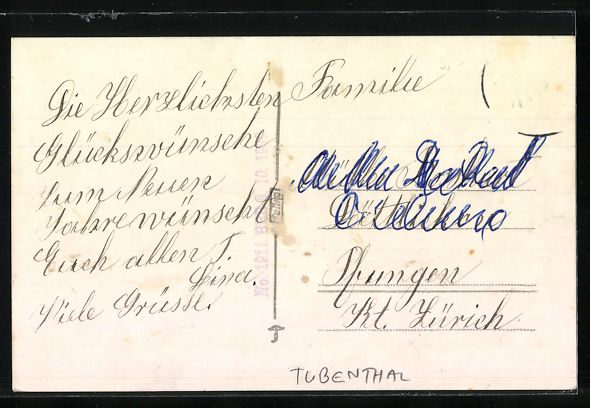 Die Herzlichsten
Glückswünsche
zum Neuen
Jahre wünscht
Euch allen T.
Lina.
Viele Grüsse.
Familie
Pfungen
Kt. Zürich
TUBENTHAL